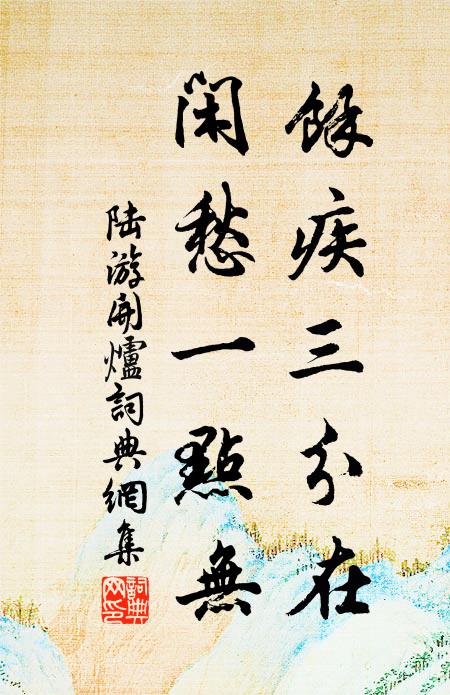 餘疾三分在
閑愁一點無
陆游開爐詞典網集
詞典